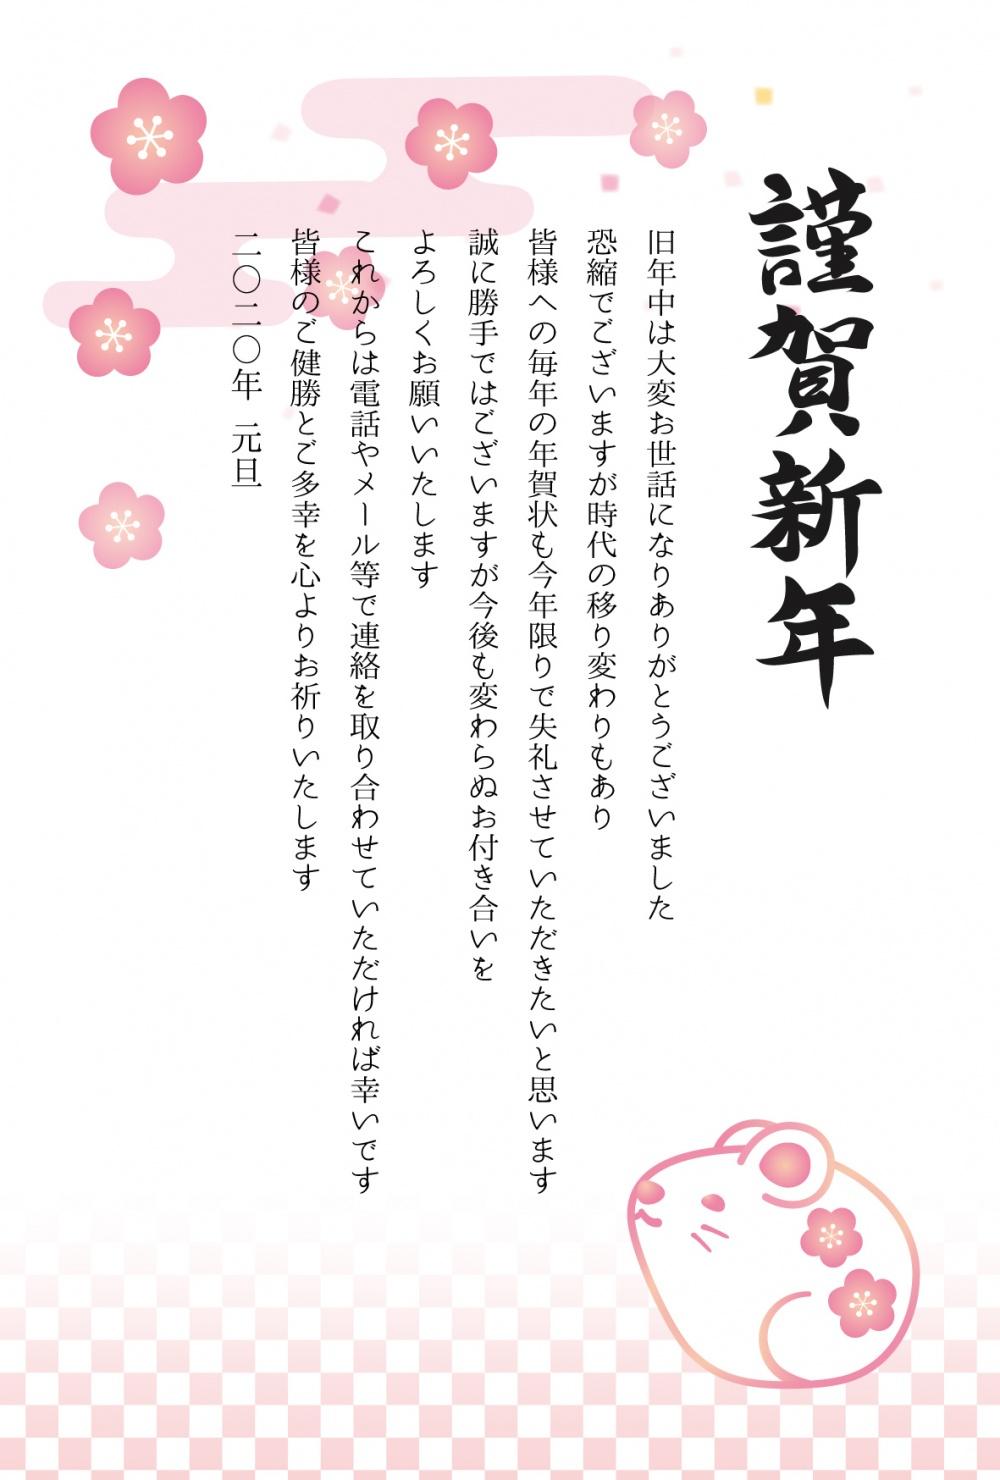 謹賀新年
旧年中は大変お世話になりありがとうございました
恐縮でございますが時代の移り変わりもあり
皆様への毎年の年賀状も今年限りで失礼させていただきたいと思います
誠に勝手ではございますが今後も変わらぬお付き合いを
よろしくお願いいたします
これからは電話やメール等で連絡を取り合わせていただければ幸いです
皆様のご健勝とご多幸を心よりお祈りいたします
二〇二〇年 元旦